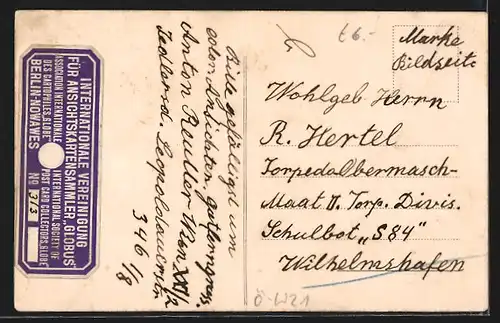 INTERNATIONALE VEREINIGUNG
FÜR ANSICHTSKARTENSAMMLER „GLOBUS"
ASSOCIATION INTERNATIONALE
DES CARTOPHILES „GLOBE"
INTERNATIONAL SOCIETY OF
POST CARD COLLECTORS „GLOBE
BERLIN-NOWAWES
No 313
Bitte gefälligst um
Anton Reutter Wien XXI/2
Jedlersd. Leopoldauerstr
346 1/8
66.-
Marke
Bildseite
Wohlgeb Herrn
R. Hertel
Torpedolbermasch-
Maat II. Torp. Divis.
Schulbot „S84"
Wilhelmshafen
Ö-W21